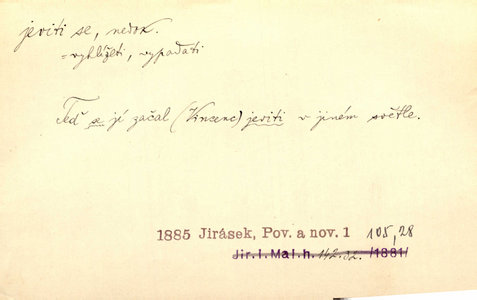 jeviti se, nedok.
= vyhlížeti, vypadati
Teď se jí začal (Vincenc) jeviti v jiném světle.
1885 Jirásek, Pov. a nov. 1 105,28
Jir. I. Mal. h. /1881/